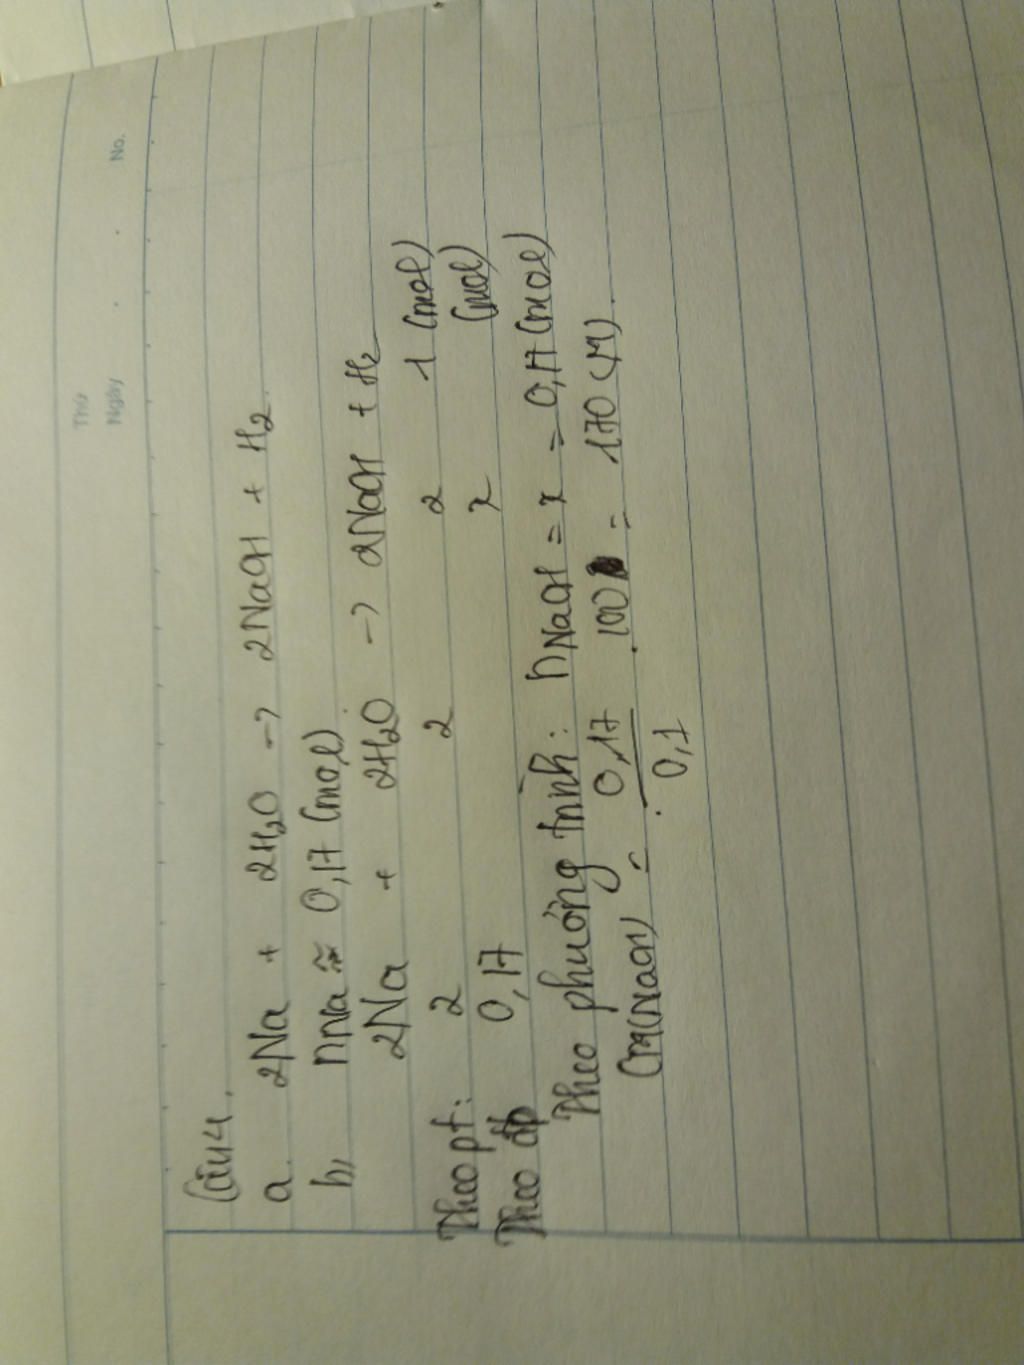 Thứ
Ngày . . No.
Câu 4.
a. 2Na + 2H₂O → 2NaOH + H₂
b, nNa ≈ 0,17 (mol)
2Na + 2H₂O → 2NaOH + H₂
Theo pt: 2 2 2 1 (mol)
Theo đb 0,17 x (mol)
Theo phương trình: nNaOH = x = 0,17 (mol)
CM(NaOH) = 0,17 / 0,1 . 100 = 170 (M).